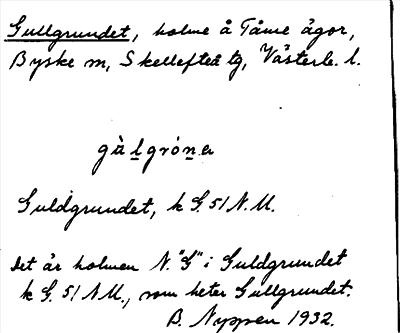 Gullgrundet, holme å Tåme ägor,
Byske sn, Skellefteå tg, Västerb. l.
gà l gróna
Guldgrundet, k G. 51 N.M.
Det är holmen N. "G" i Guldgrundet
k G. 51 N.M., som heter Gullgrundet.
B. Nyppen 1932.